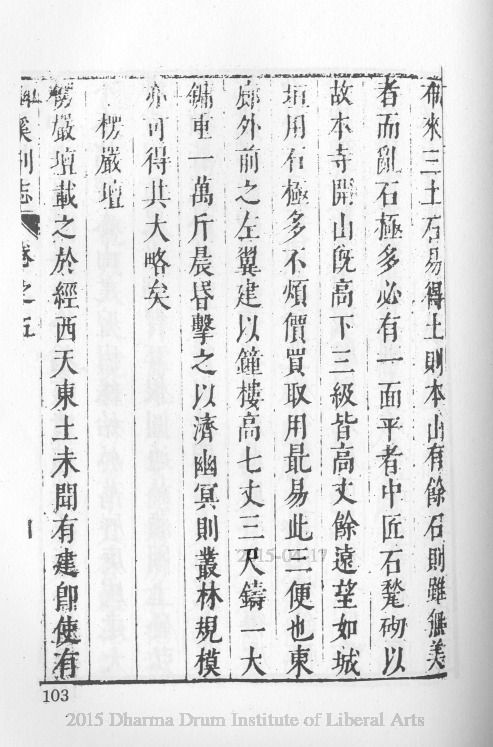 來三土石易得土則本山有餘石則雖無美
者而亂石極多必有一面平者中匠石甃砌以
故本寺開山旣高下三級皆高丈餘遠望如城
垣用石極多不煩價買取用最易此三便也東
廊外前之左翼建以鐘樓高七丈三尺鑄一大
鏞重一萬斤晨昏擊之以濟幽冥則叢林規模
亦可得其大略矣
楞嚴壇
楞嚴壇載之於經西天東土未聞有建卽使有
溪別志 卷之五
103
2015-04-17
2015 Dharma Drum Institute of Liberal Arts